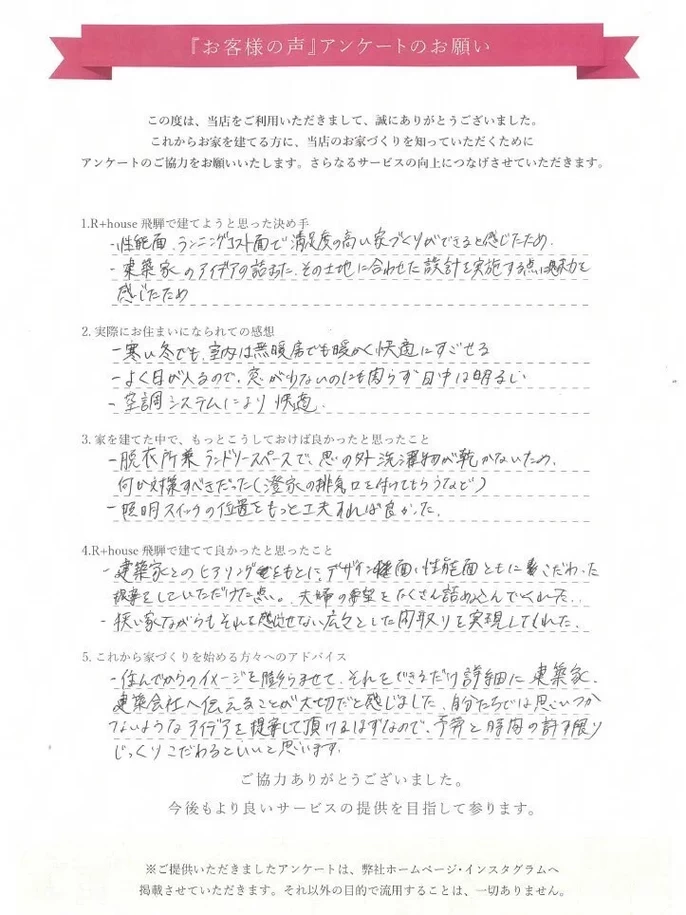 『お客様の声』アンケートのお願い
この度は、当店をご利用いただきまして、誠にありがとうございました。
これからお家を建てる方に、当店のお家づくりを知っていただくために
アンケートのご協力をお願いいたします。さらなるサービスの向上につなげさせていただきます。
1.R+house 飛騨で建てようと思った決め手
-性能面、ランニングコスト面で満足度の高い家づくりができると感じたため.
-建築家のアイデアの詰まった、その土地に合わせた設計を実施する点に魅力を
感じたため
2.実際にお住まいになられての感想
-寒い冬でも、室内は無暖房でも暖かく快適にすごせる
-よく日が入るので、窓が少ないのにも関らず日中は明るい
-空調システムにより快適.
3.家を建てた中で、もっとこうしておけば良かったと思ったこと
-脱衣所兼ランドリースペースで、思の外洗濯物が乾かないため、
何か対策すべきだった(の排気口を付けてもらうなど)
-照明スイッチの位置をもっと工夫すれば良かった.
4.R+house 飛騨で建てて良かったと思ったこと
-建築家とのヒアリングをもとに、デザイン面、性能面ともにこだわった
提案をしていただけた点。夫婦の希望をたくさん詰め込んでくれた.
-狭い家ながらもそれを感じさせない広々とした間取りを実現してくれた.
5.これから家づくりを始める方々へのアドバイス
-住んでからのイメージを膨らませて、それをできるだけ詳細に建築家、
建築会社へ伝えることが大切だと感じました.自分たちでは思いつか
ないようなアイデアを提案して頂けるはずなので、予算と時間の許す限り
じっくりこだわるといいと思います.
ご協力ありがとうございました。
今後もより良いサービスの提供を目指して参ります。
※ご提供いただきましたアンケートは、弊社ホームページ・インスタグラムへ
掲載させていただきます。それ以外の目的で流用することは、一切ありません。